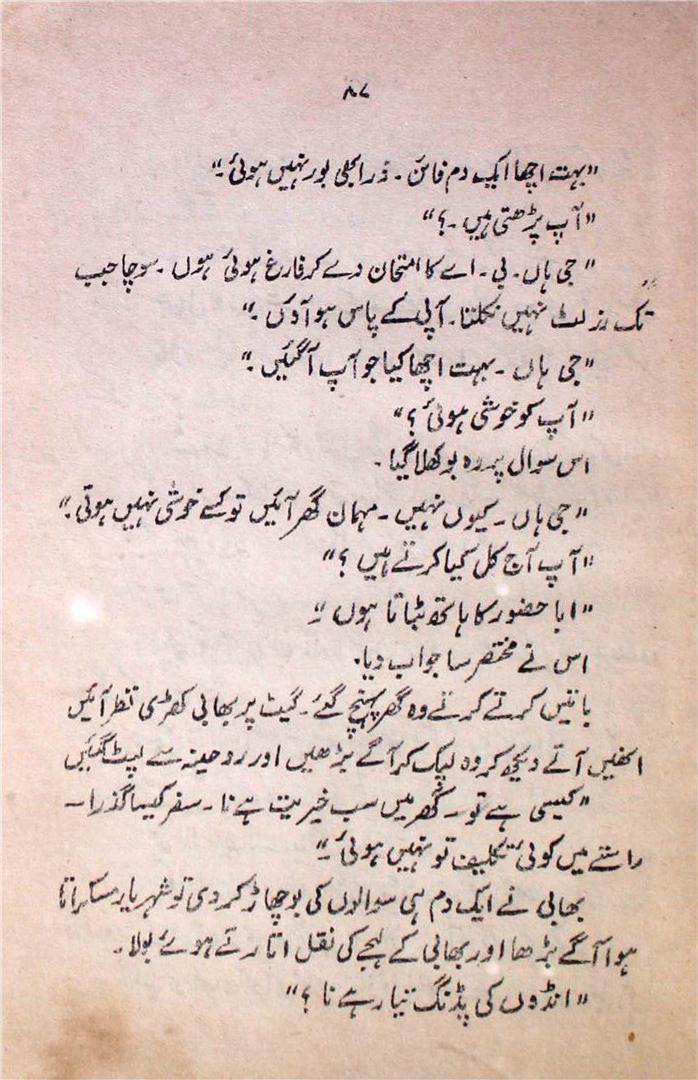 ۸۷
"بہت اچھا ایک دم فائن ۔ ذرا بھی بور نہیں ہوئی ۔"
"آپ پڑھتی ہیں ۔؟"
"جی ہاں ۔ بی ۔ اے کا امتحان دے کر فارغ ہوئی ہوں ۔ سوچا جب
تک رزلٹ نہیں نکلتا ۔ آپی کے پاس ہو آؤں ۔"
"جی ہاں ۔ بہت اچھا کیا جو آپ آگئیں ۔"
"آپ کو خوشی ہوئی ؟"
اس سوال پر وہ بوکھلا گیا ۔
"جی ہاں ۔ کیوں نہیں ۔ مہمان گھر آئیں تو کسے خوشی نہیں ہوتی ۔"
"آپ آج کل کیا کرتے ہیں ؟"
"ابا حضور کا ہاتھ بٹاتا ہوں ۔"
اس نے مختصر سا جواب دیا ۔
باتیں کرتے کرتے وہ گھر پہنچ گئے ۔ گیٹ پر بھابی کھڑی نظر آئیں
انھیں آتے دیکھ کر وہ لپک کر آگے بڑھیں اور روحینہ سے لپٹ گئیں
"کیسی ہے تو ۔ گھر میں سب خیریت ہے نا ۔ سفر کیسا گذرا ۔
راستے میں کوئی تکلیف تو نہیں ہوئی ۔"
بھابی نے ایک دم ہی سوالوں کی بوچھاڑ کر دی تو شہریار مسکراتا
ہوا آگے بڑھا اور بھابی کے لہجے کی نقل اتارتے ہوئے بولا ۔
"انڈوں کی پڈنگ تیار ہے نا ؟"